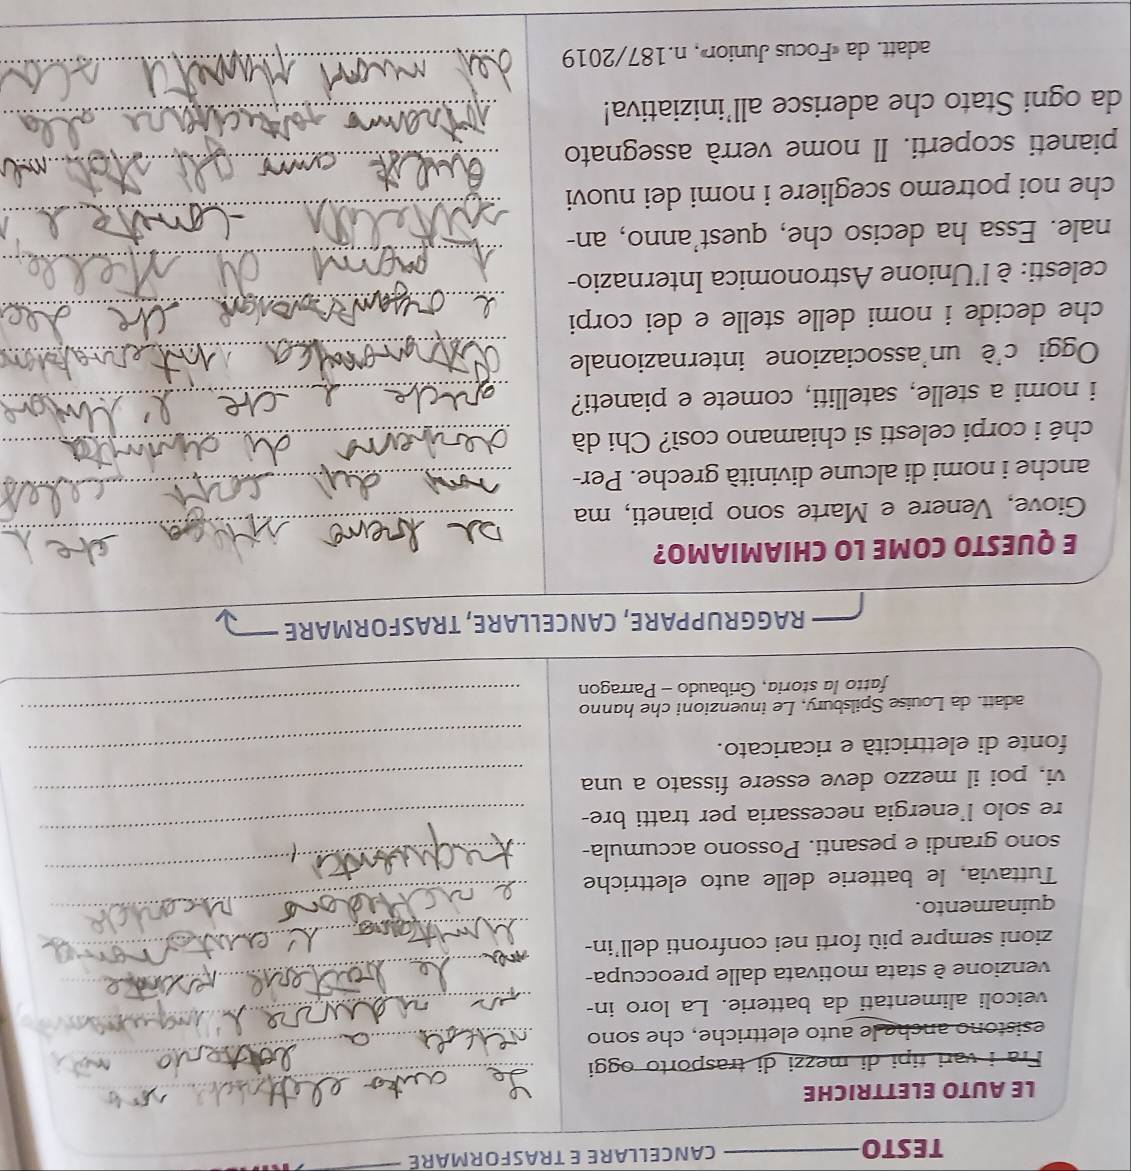 TESTO
CANCELLARE E TRASFORMARE
LE AUTO ELETTRICHE
Fra i vari tipi di mezzi di trasporto oggi
esistono anche le auto elettriche, che sono
veicoli alimentati da batterie. La loro in-
venzione è stata motivata dalle preoccupa-
zioni sempre più forti nei confronti dell'in-
quinamento.
Tuttavia, le batterie delle auto elettriche
sono grandi e pesanti. Possono accumula-
re solo l'energia necessaria per tratti bre-
vi, poi il mezzo deve essere fissato a una
fonte di elettricità e ricaricato.
adatt. da Louise Spilsbury, Le invenzioni che hanno
fatto la storia, Gribaudo – Parragon
Le auto elettriche sono
veicoli a
ridurre l'inquinamento
le batterie pesante
limitano l'autonomia
e richiedono ricariche
frequenti
RAGGRUPPARE, CANCELLARE, TRASFORMARE
E QUESTO COME LO CHIAMIAMO?
Giove, Venere e Marte sono pianeti, ma
anche i nomi di alcune divinità greche. Per-
ché i corpi celesti si chiamano così? Chi dà
i nomi a stelle, satelliti, comete e pianeti?
Oggi c'è un'associazione internazionale
che decide i nomi delle stelle e dei corpi
celesti: è l'Unione Astronomica Internazio-
nale. Essa ha deciso che, quest'anno, an-
che noi potremo scegliere i nomi dei nuovi
pianeti scoperti. Il nome verrà assegnato
da ogni Stato che aderisce all'iniziativa!
adatt. da «Focus Junior», n.187/2019
che i
dei corpi
da divinità
greche e che l'Unione
astronomica
organizzazione che
stelle,
comete e
gli stati
potranno partecipare alla
dei nuovi pianeti